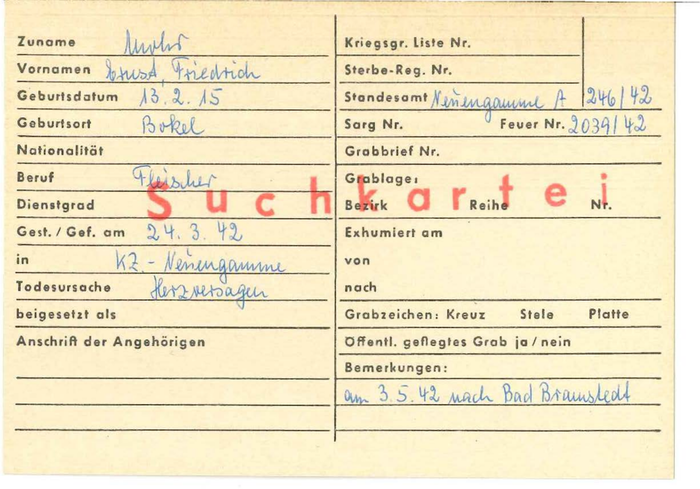 Zuname Mohr
Vornamen Ernst, Friedrich
Geburtsdatum 13.2.15
Geburtsort Bokel
Nationalität
Beruf Fleischer
Dienstgrad
Gest. / Gef. am 24.3.42
in KZ.-Neuengamme
Todesursache Herzversagen
beigesetzt als
Anschrift der Angehörigen
Suchkartei
Kriegsgr. Liste Nr.
Sterbe-Reg. Nr.
Standesamt Neuengamme A 246/42
Sarg Nr. Feuer Nr. 2039/42
Grabbrief Nr.
Grablage:
Bezirk Reihe Nr.
Exhumiert am
von
nach
Grabzeichen: Kreuz Stele Platte
Öffentl. geflegtes Grab ja / nein
Bemerkungen:
am 3.5.42 nach Bad Bramstedt